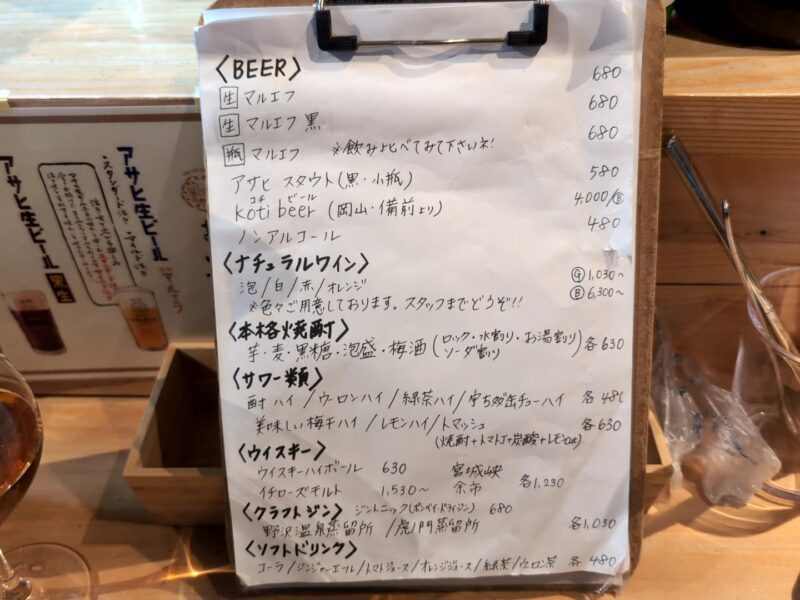 〈BEER〉
生 マルエフ 680
生 マルエフ 黒 680
瓶 マルエフ ※飲み比べてみて下さいネ! 680
アサヒ スタウト(黒・小瓶) 580
コチ ビール
koti beer (岡山・備前より) 4,000/Ⓑ
ノンアルコール 480
〈ナチュラルワイン〉
泡/白/赤/オレンジ Ⓖ1,030~
※色々ご用意しております。スタッフまでどうぞ!! Ⓑ6,300~
〈本格焼酎〉
芋・麦・黒糖・泡盛・梅酒(ロック・水割り・お湯割り 各630
ソーダ割り)
〈サワー類〉
酎ハイ/ウーロンハイ/緑茶ハイ/缶チューハイ 各480
美味しい梅干ハイ/レモンハイ/トマッシュ 各630
(焼酎+トマトJ+炭酸+レモン)
〈ウイスキー〉
ウイスキーハイボール 630 宮城峡
イチローズモルト 1,530~ 余市 各1,230
〈クラフトジン〉 ジントニック(ボンベイ・ドライジン) 680
野沢温泉蒸留所/虎ノ門蒸留所 各1,030
〈ソフトドリンク〉
コーラ/ジンジャーエール/トマトジュース/オレンジジュース/緑茶/ウーロン茶 各480
アサヒ生ビール
マルエフ
アサヒ生ビール 黒生